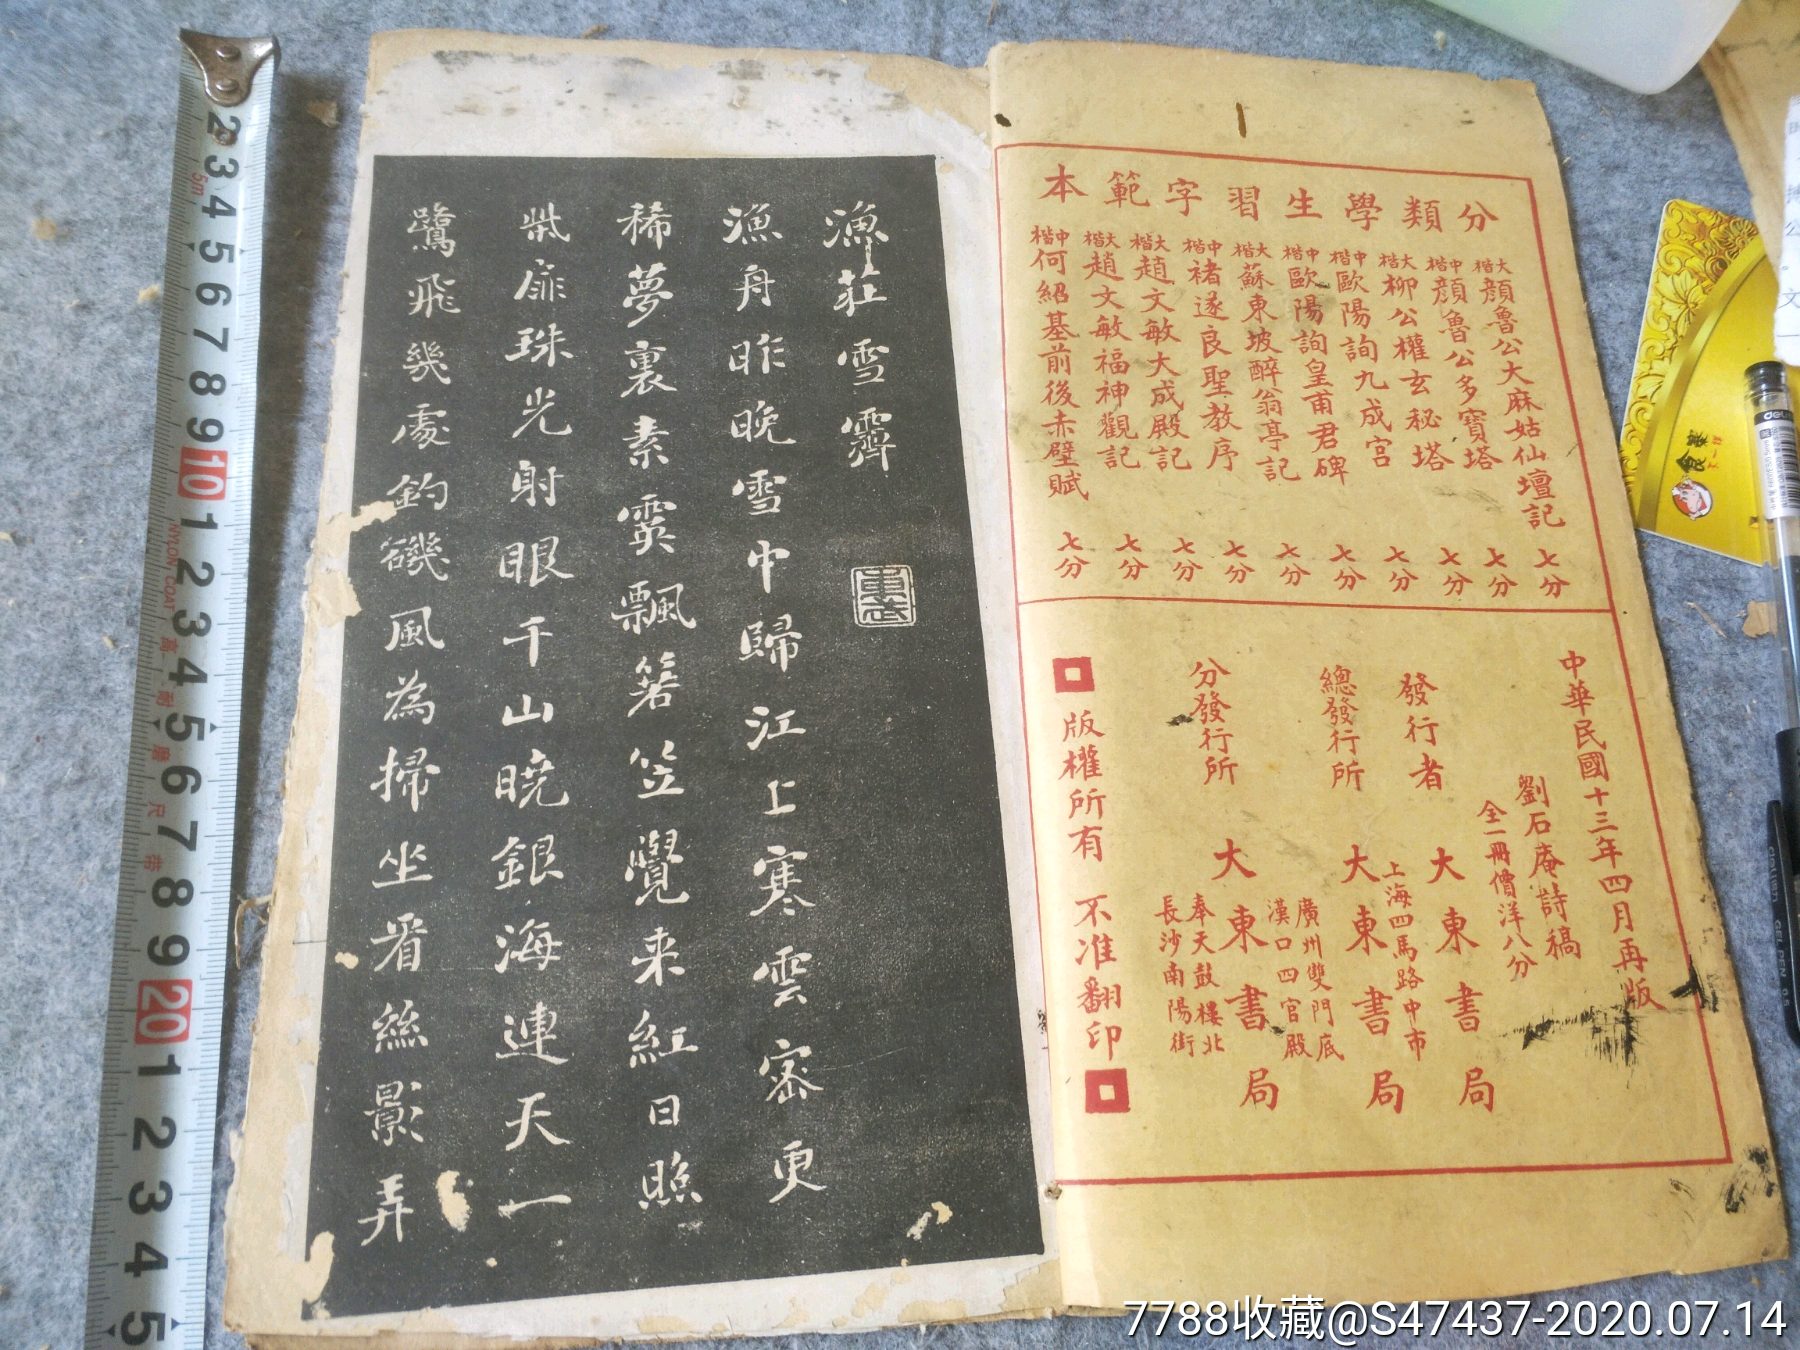 分類學生習字範本
大楷顏魯公大麻姑仙壇記 七分
中楷顏魯公多寶塔 七分
大楷柳公權玄秘塔 七分
中楷歐陽詢九成宮 七分
中楷歐陽詢皇甫君碑 七分
大楷蘇東坡醉翁亭記 七分
中楷褚遂良聖教序 七分
大楷趙文敏大成殿記 七分
大楷趙文敏福神觀記 七分
中楷何紹基前後赤壁賦 七分
中華民國十三年四月再版
劉石庵詩稿
全一冊價洋八分
發行者 大東書局
上海四馬路中市
總發行所 大東書局
廣州雙門底
漢口四官殿
分發行所 大東書局
奉天鼓樓北
長沙南陽街
版權所有 不准翻印
漁莊雪霽
東武
漁舟昨晚雪中歸江上寒雲密更
稀夢裏素霙飄箬笠覺来紅日照
柴扉珠光射眼千山曉銀海連天一
鷺飛幾處釣磯風為掃坐看絲影弄
2 3 4 5 6 7 8 9 10 1 2 3 4 5 6 7 8 9 20 1 2 3 4 5
5m
NYLON COAT 高耐磨尺带
deli
GEL PEN 0.5
7788收藏@S47437-2020.07.14